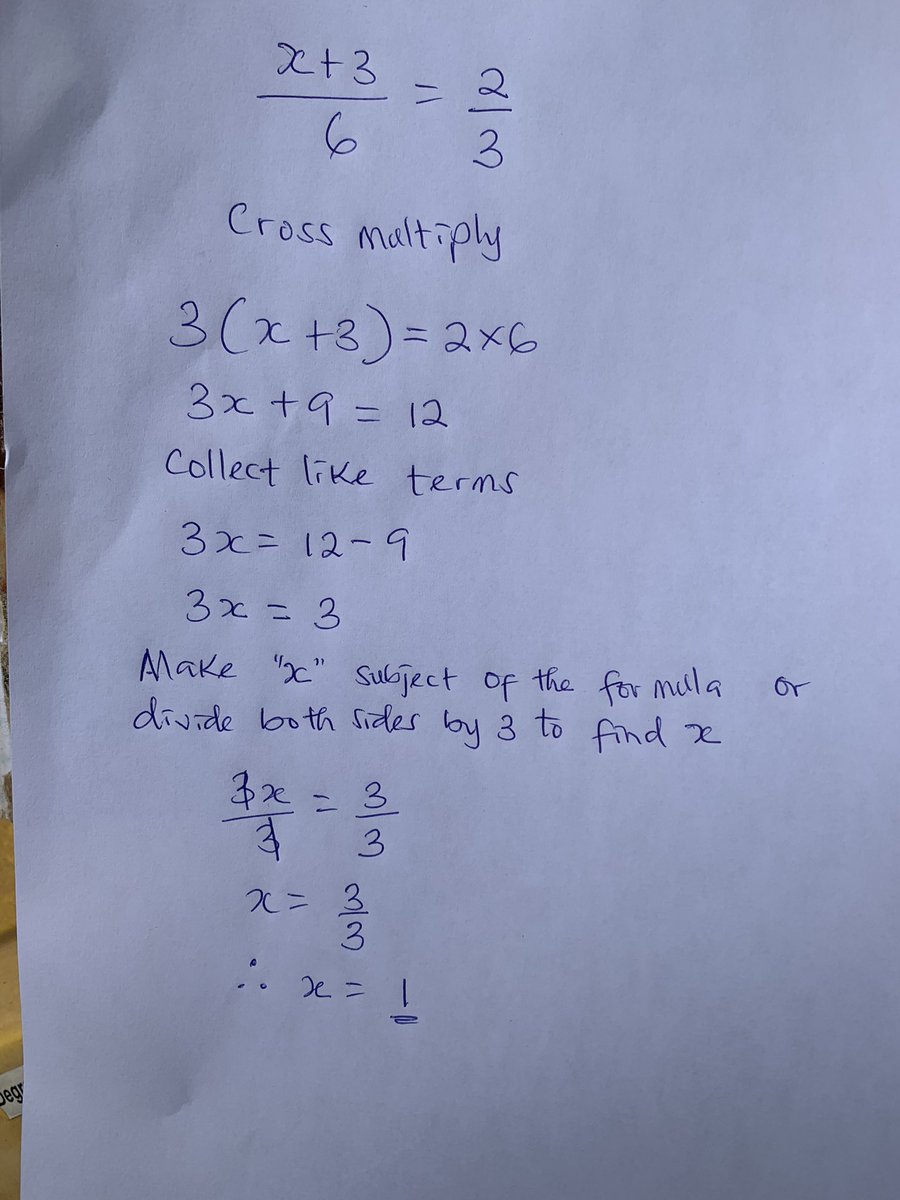 x+3
6
=
2
3
Cross multiply
3(x+3)=2×6
3x+9 = 12
Collect like terms
3x= 12-9
3x = 3
Make "x" subject of the formula or
divide both sides by 3 to find x
3x
3
=
3
3
x=
3
3
∴ x = 1